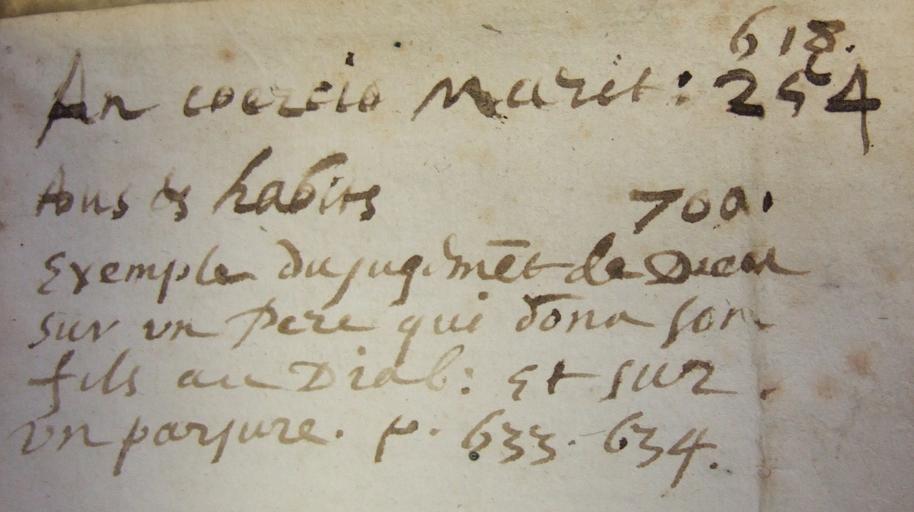 618.
An coercio Marit: 254
tous es habits 700.
Exemple du jugemēt de Dieu
sur un Pere qui dōna son
fils au Diab: et sur
un parjure. p. 633. 634.